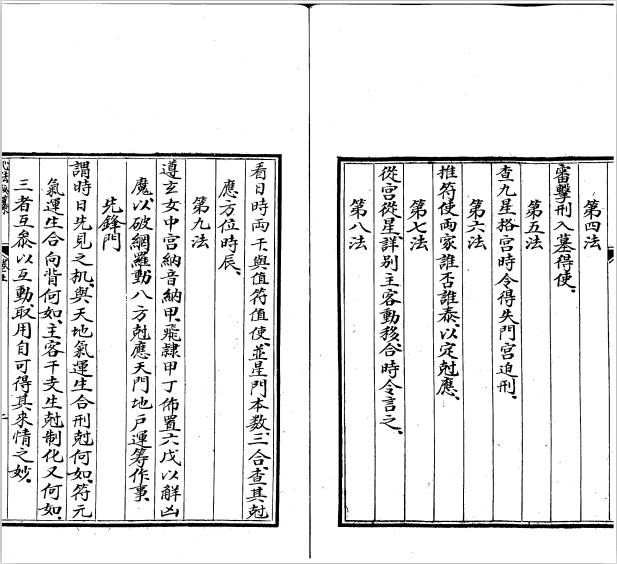 第四法
審擊刑入墓得使、
第五法
查九星撘宮時令得失門宮迫刑、
第六法
推符使両家誰否誰泰、以定尅應、
第七法
從宮從星詳别主客動移、合時令言之、
第八法
看日時両干與值符值使、並星門本数、三合、查其尅
應方位時辰、
第九法
遵玄女中宮納音納甲、飛隷甲丁佈置六戊以解凶
魔以破網羅動八方尅應天門地户運筹作事、
先鋒門
謂時日先見之机、與天地氣運生合刑尅何如、符元
氣運生合向背何如、主客干支生尅制化又何如、
三者互叅以互動、取用自可得其来情之妙、
卷五
二